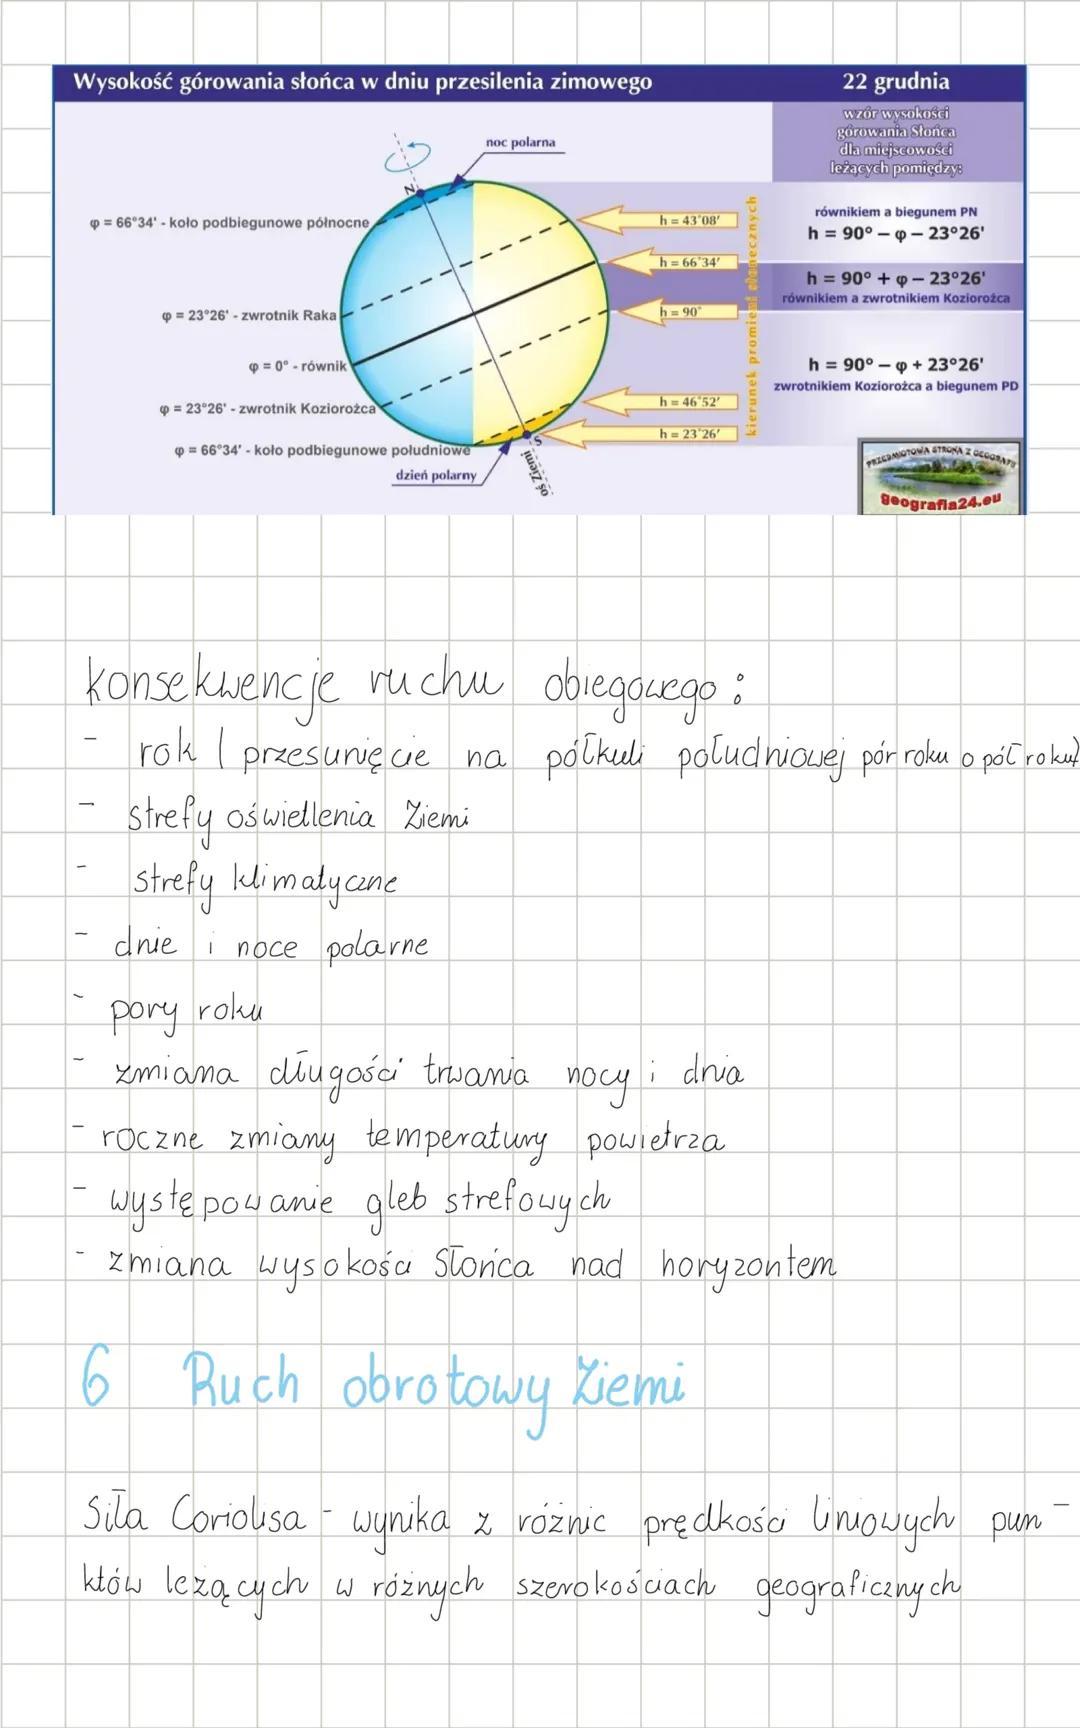 Wysokość górowania słońca w dniu przesilenia zimowego
22 grudnia
wzór wysokości
górowania Słońca
dla miejscowości
leżących pomiędzy:
noc polarna
N
φ = 66°34' - koło podbiegunowe północne
φ = 23°26' - zwrotnik Raka
φ = 0° - równik
φ = 23°26' - zwrotnik Koziorożca
φ = 66°34' - koło podbiegunowe południowe
dzień polarny
S
oś Ziemi
h = 43°08'
h = 66°34'
h = 90°
h = 46°52'
h = 23°26'
kierunek promieni słonecznych
równikiem a biegunem PN
h = 90° – φ – 23°26'
h = 90° + φ – 23°26'
równikiem a zwrotnikiem Koziorożca
h = 90° – φ + 23°26'
zwrotnikiem Koziorożca a biegunem PD
PRZEDMIOTOWA STRONA Z GEOGRAFII
geografia24.eu
konsekwencje ruchu obiegowego :
- rok ( przesunięcie na półkuli południowej pór roku o pół roku)
- strefy oświetlenia Ziemi
- strefy klimatyczne
- dnie i noce polarne
- pory roku
- zmiana długości trwania nocy i dnia
- roczne zmiany temperatury powietrza
- występowanie gleb strefowych
- zmiana wysokości Słońca nad horyzontem
6 Ruch obrotowy Ziemi
Siła Coriolisa - wynika z różnic prędkości liniowych pun-
któw leżących w różnych szerokościach geograficznych